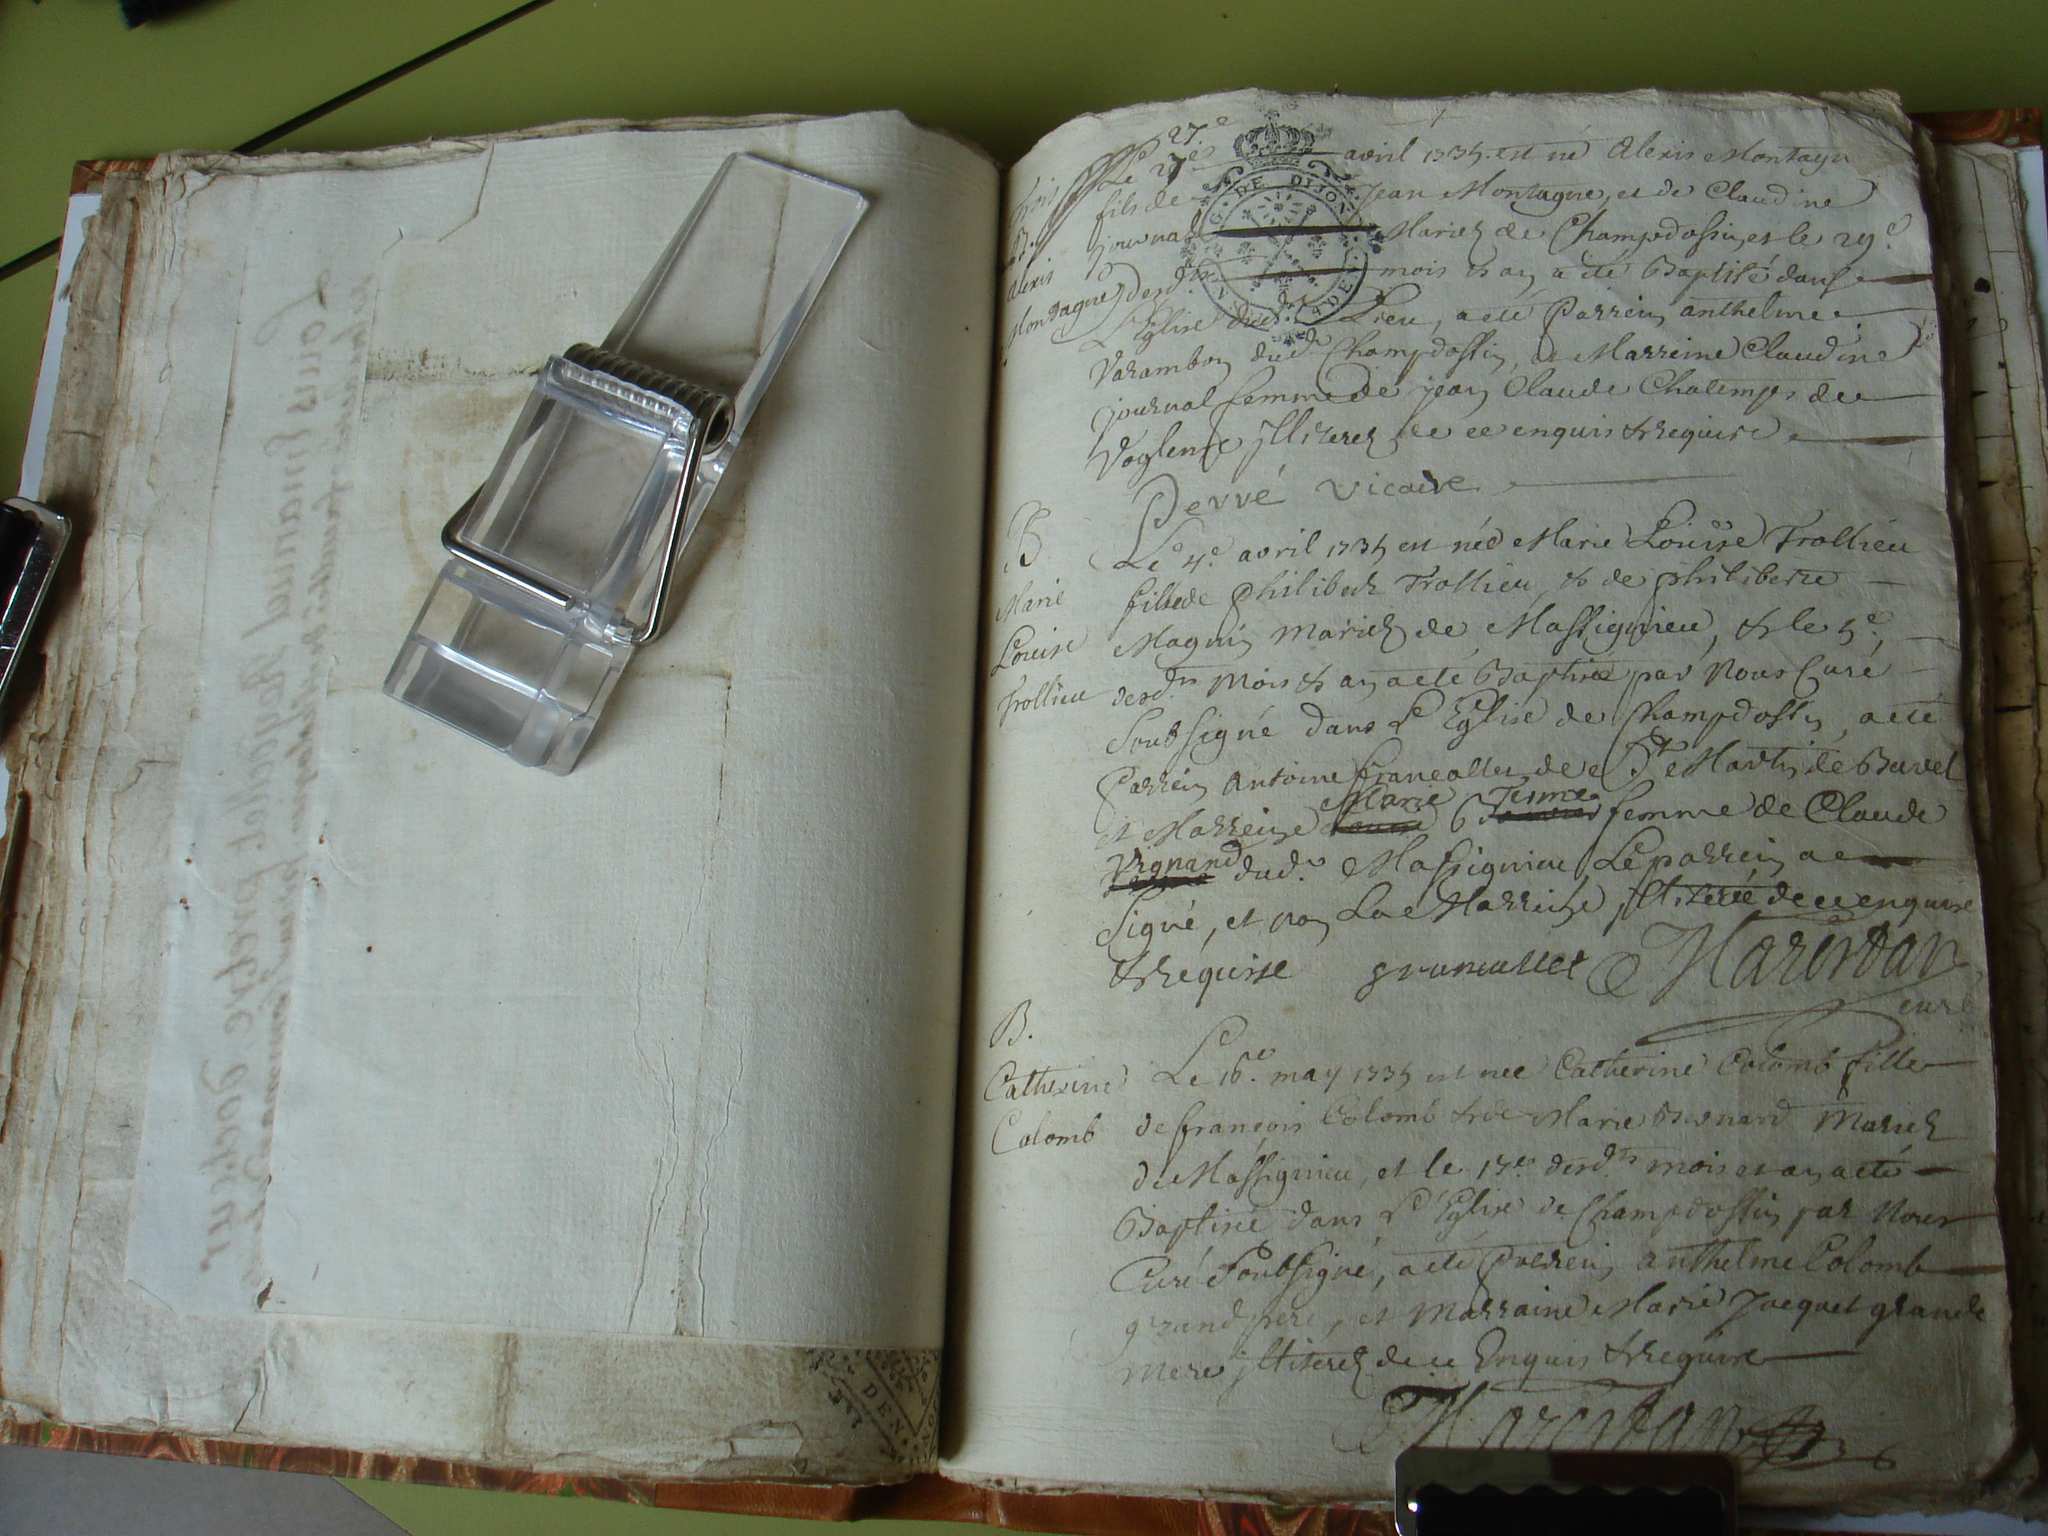 Le 27.e
Le 27e avril 1735 est né Alexis Montagn
fils de Jean Montagne, et de Claudine
journal Mariez de Champdossin, et le 29.e
desd.ts mois & an a eté Baptisé dans
l'Eglise dud.t Lieu, a eté Parrein anthelme
Varambon dud.t Champdossin, et Marreine Claudine
journal femme de jean Claude Chatemps de
Voglense jlliterez de ce enquis & requise
B.
Alexis
Montagne
Perré vicaire
B
Marie
Louise
Trollieu
Le 4.e avril 1735 est née Marie Louise Trollieu
fille de Philibert Trollieu, & de philiberte
Magnin mariez de Massignieu, & le 5.e
desd.ts mois & an a eté Baptisée par Nous Curé
soubsigné dans L'Eglise de Champdossin, a eté
Parrein Antoine francallet de St Martin de Bavel
et Marreine Marie femme de Claude
Vignand dud.t Massignieu Le parrein a
signé, et non La Marreine jlliterée de ce enquise
& requise grancallet Marindan
curé
B.
Catherine
Colomb
Le 16.e may 1735 est nee Catherine Colomb fille
de françois Colomb & de Marie Bernard Mariez
de Massignieu, et le 17.e desd.ts mois et an a eté
Baptisée dans L'Eglise de Champdossin par Nous
Curé Soubsigné, a eté Parrein anthelme Colomb
grand pere, et Marraine Marie Jacquet grande
mere jlliterez de ce Enquis & requise
Marindan
DE DIJON
DEN